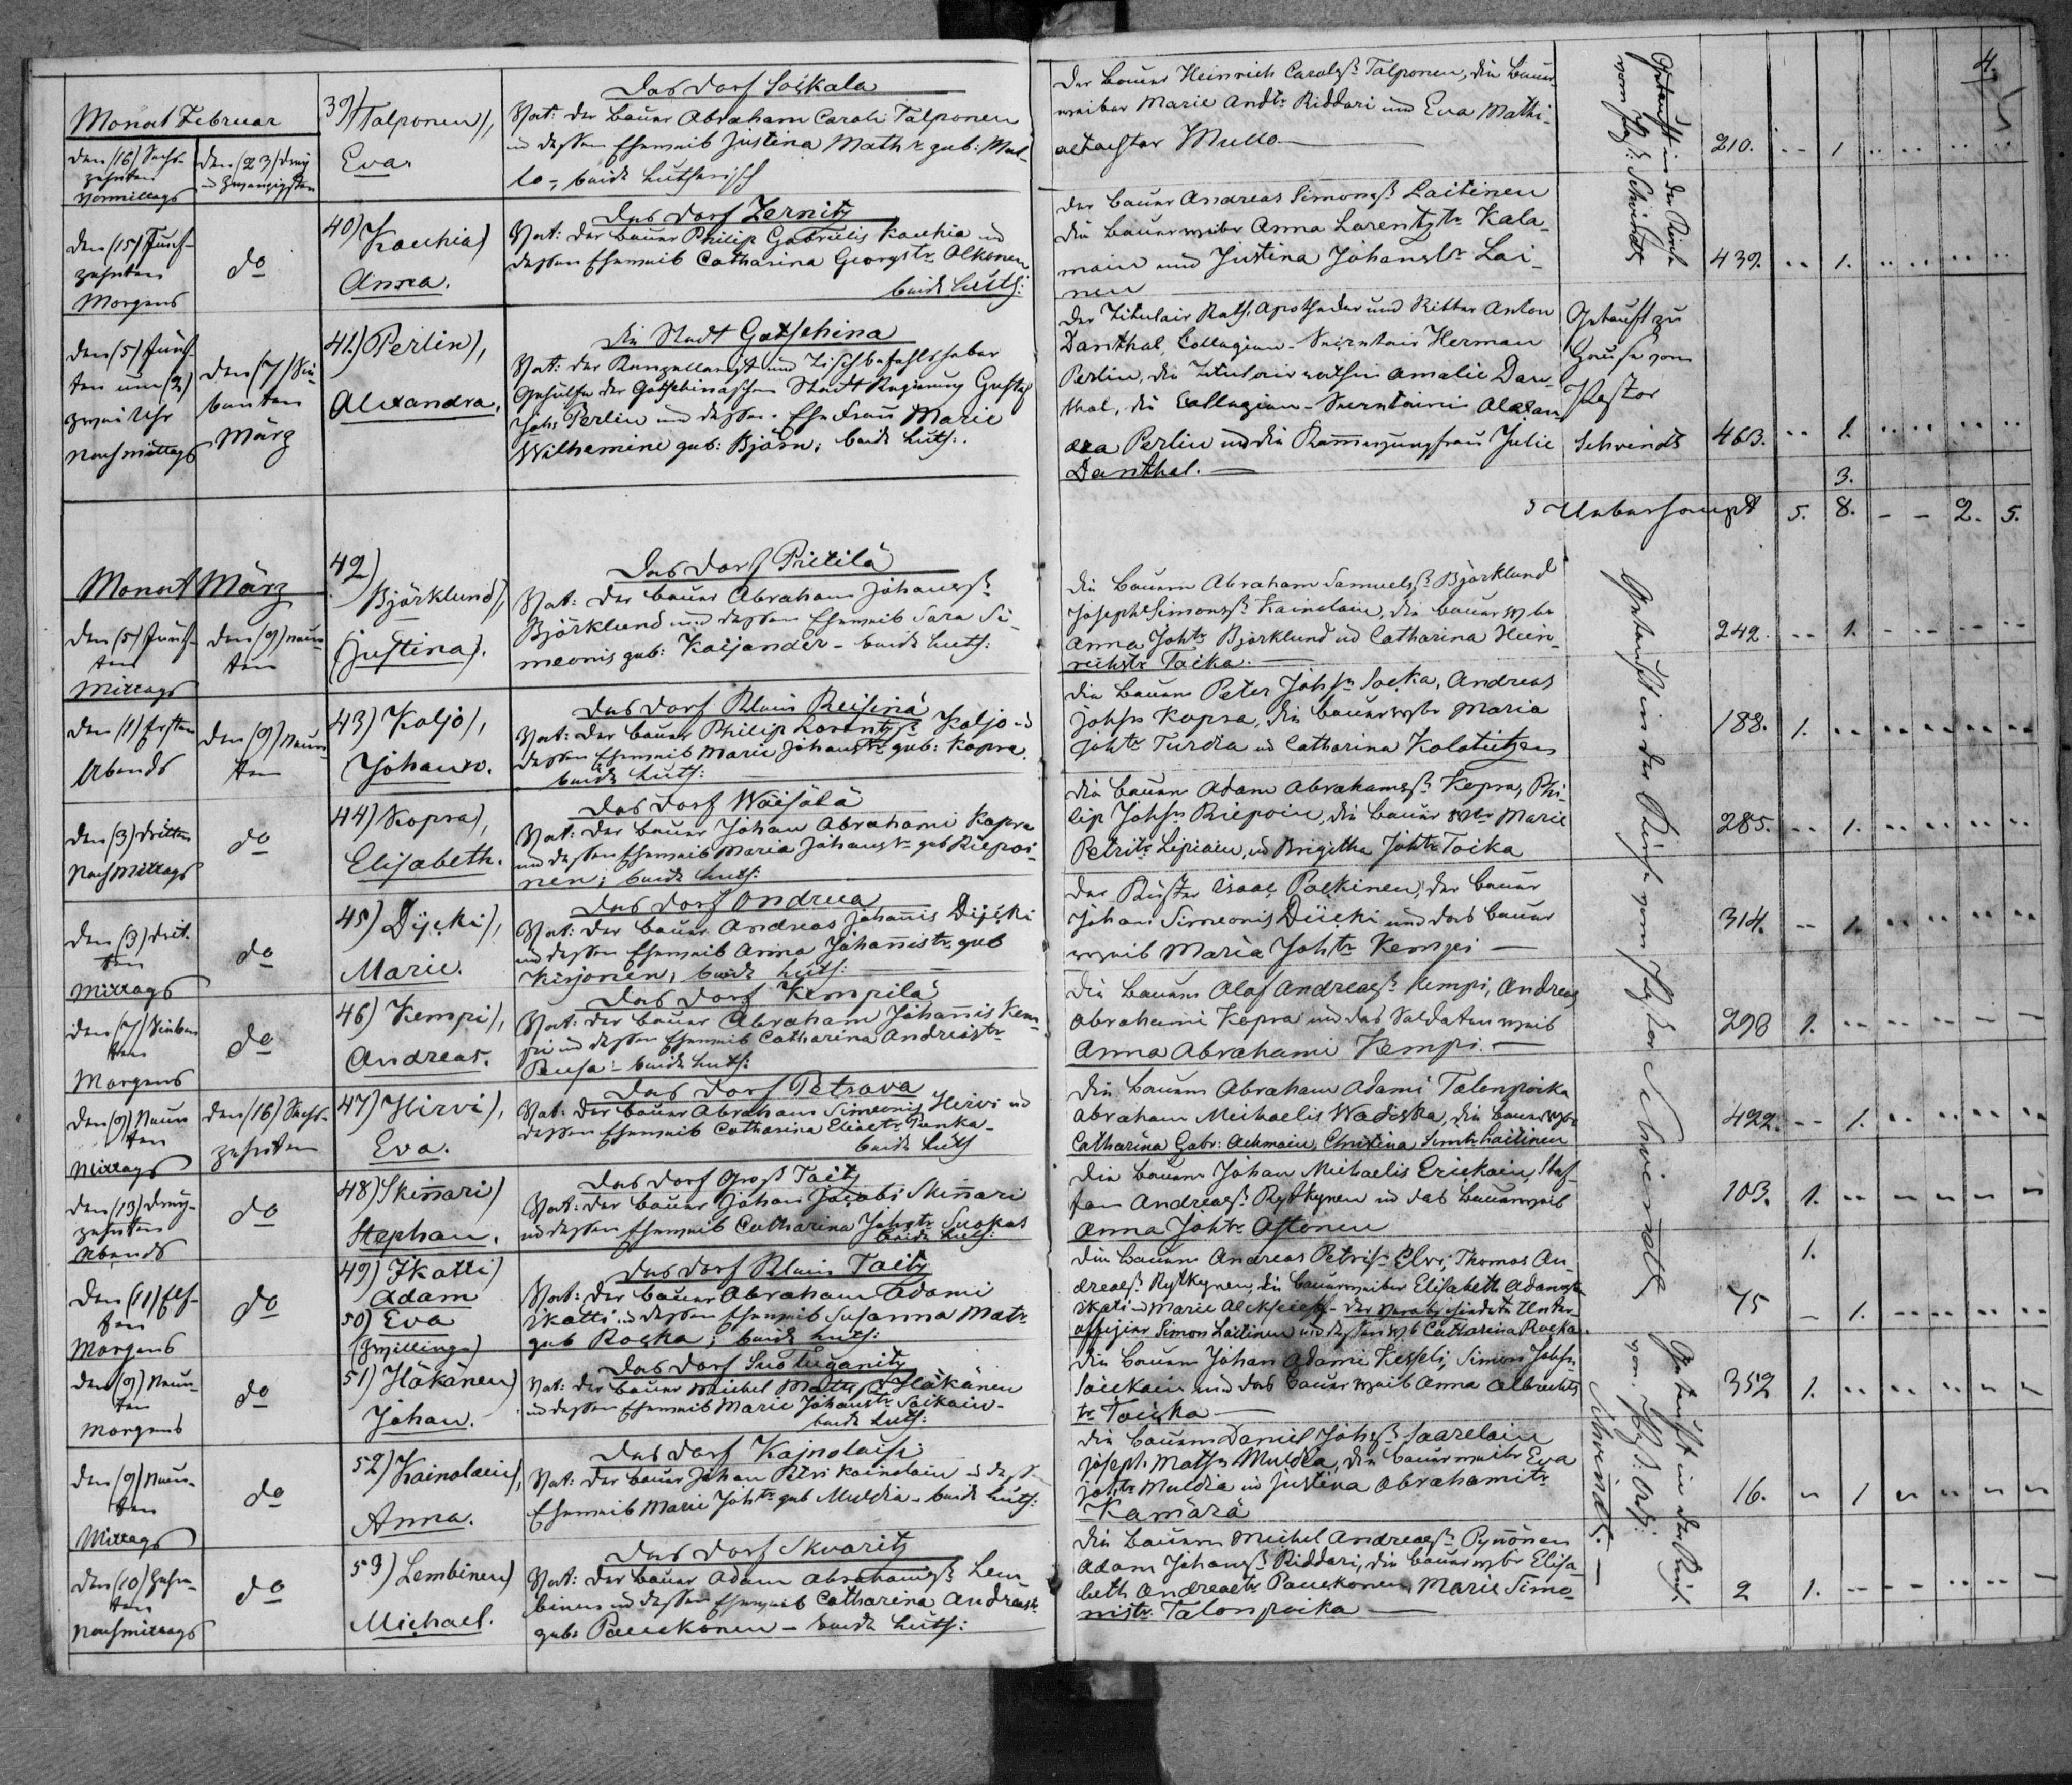 4.
Monat Februar
den (16) Sechs-
zehnten
Vormittags
den (23) drey
und zwanzigsten
39) Talponen),
Eva.
Das Dorf Soikala
Vat: der Bauer Abraham Caroli Talponen
u dessen Eheweib Justina Math tr geb: Mul-
lo -, beide Lutherisch
Der Bauer Heinrich Carolss. Talponen, die Bauer-
weiber Marie Andtr Riddari und Eva Mathi-
aetochter Mullo
Getauft in der Kirche
vom Past: Schwindt
210. .. 1 .. .. .. ..
den (15) Fünf-
zehnten
Morgens
do
40) Kauhia)
Anna.
Das Dorf Zernitz
Vat: der Bauer Philip Gabrielis Kauhia und
dessen Eheweib Catharina Georgstr Olkonen
beide Luth:
der Bauer Andreas Simonss Laitinen
die Bauerweiber Anna Lorentztr Kala-
main und Justina Johanstr Lai-
nen
439. .. 1. .. .. .. ..
den (5) Fünf-
ten um (2)
zwei Uhr
Nachmittags
den (7) Sie-
benten
März
41.) Perlin),
Alexandra.
Die Stadt Gatschina
Vat: der Kanzellarist und Tischvorstehers
Gehülfe der Gatschinaschen Stadt Regierung Gustav
Joh: Perlin und dessen Ehefrau Marie
Wilhemine geb: Björn; beide Luth:.
Der Titulair Rath, Apotheker und Ritter Anton
Danthal, Collegien-Secretair Herman
Perlin, die Titulairräthin Amalie Dan-
thal, die Collegien-Secretairin Alexan-
dra Perlin und die Kammerjungfrau Julie
Danthal.
Getauft zu
Hause vom
Pastor
Schwindt
463. .. 1. .. .. .. ..
3.
Ueberhaupt 5. 8. - - 2. 5.
Monat März
den (5) Fünf-
ten
Mittags
den (9) neun-
ten
42)
Björklund),
(Justina).
Das Dorf Pietilä
Vat: der Bauer Abraham Johanss
Björklund und dessen Eheweib Sara Si-
meonis geb: Kaijander - beide Luth:
die Bauern Abraham Samuelss. Björklund
Joseph Simonss Kainolain, die Bauerwbr
Anna Johtr Björklund ud Catharina Hein-
richstr Toika.
Getauft in der Kirche vom Pastor Schwindt
242. .. 1. - .. .. ..
den (1) Ersten
Abends
den (9) Neun-
ten
43) Koljo),
Johann.
Das Dorf Klein Reisina
Vat: der Bauer Philip Lorentzss Koljo ud
dessen Eheweib Marie Johanstr geb: Kopra.
beide Luth:
die Bauern Peter Johsn Socka, Andreas
Johsn Kopra, die Bauerwbr Maria
Johtr Turdia ud Catharina Kolatietzen
188. 1. .. .. .. .. ..
den (3) dritten
Nachmittags
do
44) Kopra),
Elisabeth.
Das Dorf Wäisälä
Vat: der Bauer Johan Abrahami Kopra
und dessen Eheweib Maria Johanstr geb Riepoi-
nen; beide Luth:
die Bauern Adam Abrahamss Kopra, Phi-
lip Johsn Riepoin, die Bauer wbr Marie
Petritr Lipiain, ud Brigitha Johtr Toika
285. .. 1. .. .. .. ..
den (3) drit-
ten
Mittags
do
45) Dijcki),
Marie.
Das Dorf Ondrua
Vat: der Bauer Andreas Johannis Dijcki
und dessen Eheweib Anna Johannistr geb
Kirjonen, beide Luth:
Der Küster Isaac Packinen, der Bauer
Johan Simeonis Düicki und das Bauer
weib Maria Johtr Kempi
314. .. 1. .. .. .. ..
den (7) Sieben-
ten
Morgens
do
46) Kempi),
Andreas.
Das Dorf Kempilä
Vat: der Bauer Abraham Johannis Kem-
pi und dessen Eheweib Catharina Andreistr
Pensa - beide Luth:
die Bauern Olof Andreass Kempi, Andreas
Abrahami Kopra und das Soldatenweib
Anna Abrahami Kempi.
298 1. .. .. .. .. ..
den (9) Neun
ten
Mittags
den (16) Sechs-
zehnten
47) Hirvi),
Eva.
Das Dorf Petrova
Vat: der Bauer Abraham Simeonis Hirvi und
dessen Eheweib Catharina Eliaetr Penka-
beide Luth
Die Bauern Abraham Adami Talonpoika
Abraham Michaelis Wadiska, die Bauerwbr
Catharina Gabr: Achmain, Christina Simtr Laitinen
492. .. 1. .. .. .. ..
den (13) Drey-
zehnten
Abends
do
48) Skinnari)
Stephan.
Das Dorf Gross Taitz
Vat: der Bauer Johan Jacobi Skinnari
ud dessen Eheweib Catharina Johstr Suokas
beide Luth:
Die Bauern Johan Michaelis Erickain, Staf-
fan Andreass Rytkynen ud das Bauerweib
Anna Johtr Astonen
103. 1. .. .. .. .. ..
den (11) Elf-
ten
Morgens
do
49) Ikatti)
Adam
50) Eva
(Zwillinge)
Das Dorf Klein Taitz
Vat: der Bauer Abraham Adami
Ikatti, ud dessen Eheweib Susanna Matr
geb Rocka; beide Luth:
Die Bauern Andreas Petriss Elvi, Thomas An-
dreass Rytkynen, die Bauerweiber Elisabeth Adamstr
Ikati ud Marie Alekseietz - der verabschiedete Unter-
offizier Simon Laitinen und dessen wb Catharina Rocka.
1.
75 - 1. .. .. .. ..
den (9) Neun-
ten
Morgens
do
51) Häkänen)
Johan.
Das Dorf Suotuganitz
Vat: der Bauer Michel Matts ss Häkänen
ud dessen Eheweib Marie Johanstr Soikain-
beide Luth:
Die Bauern Johan Adami Kesseli, Simon Johsn
Soickain und das Bauerweib Anna Albrechts
tr Toicka
Getauft in der Kirche
von Past: Adj:
Schwindt.
352 1. .. .. .. .. ..
den (9) Neun-
ten
Mittags
do
52) Kainolain),
Anna.
Das Dorf Kajnolaisi
Vat: der Bauer Johan Petri Kainolain u dess
Eheweib Marie Johtr geb Muldia - beide Luth:
Die Bauern Daniel Johss Saarelain
Joseph Matsn Muldia, die Bauerweiber Eva
Johtr Muldia ud Justina Abrahamitr
Kamärä
16. .. 1 .. .. .. ..
den (10) Zehn-
ten
Nachmittags
do
53) Lembinen)
Michael.
Das Dorf Skvoritz
Vat: der Bauer Adam Abrahamss Lem-
binen ud dessen Eheweib Catharina Andreaetr
geb: Pauckonen - beide Luth:
Die Bauern Michel Andreass Pynönen
Adam Johanss Riddari, die Bauerwbr Elisa-
beth Andreaetr Pauckonen, Marie Simo-
nistr Talonpoika
2 1. .. .. .. .. ..